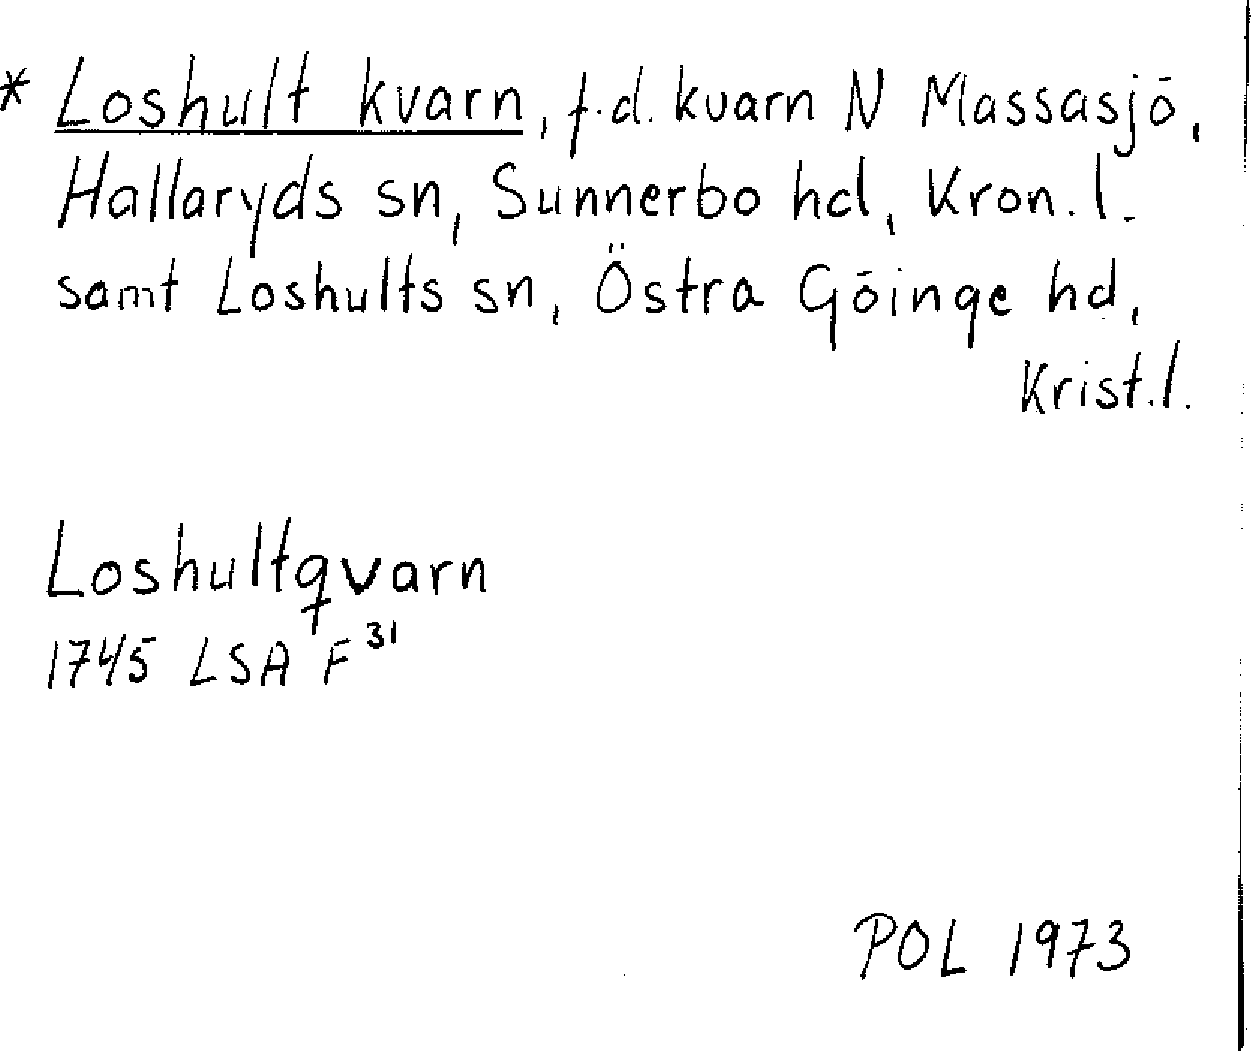 * Loshult kvarn, f.d. kvarn N Massasjö,
Hallaryds sn, Sunnerbo hd, Kron. l.
samt Loshults sn, Östra Göinge hd,
Krist. l.
Loshultqvarn
1745 LSA F³¹
POL 1973